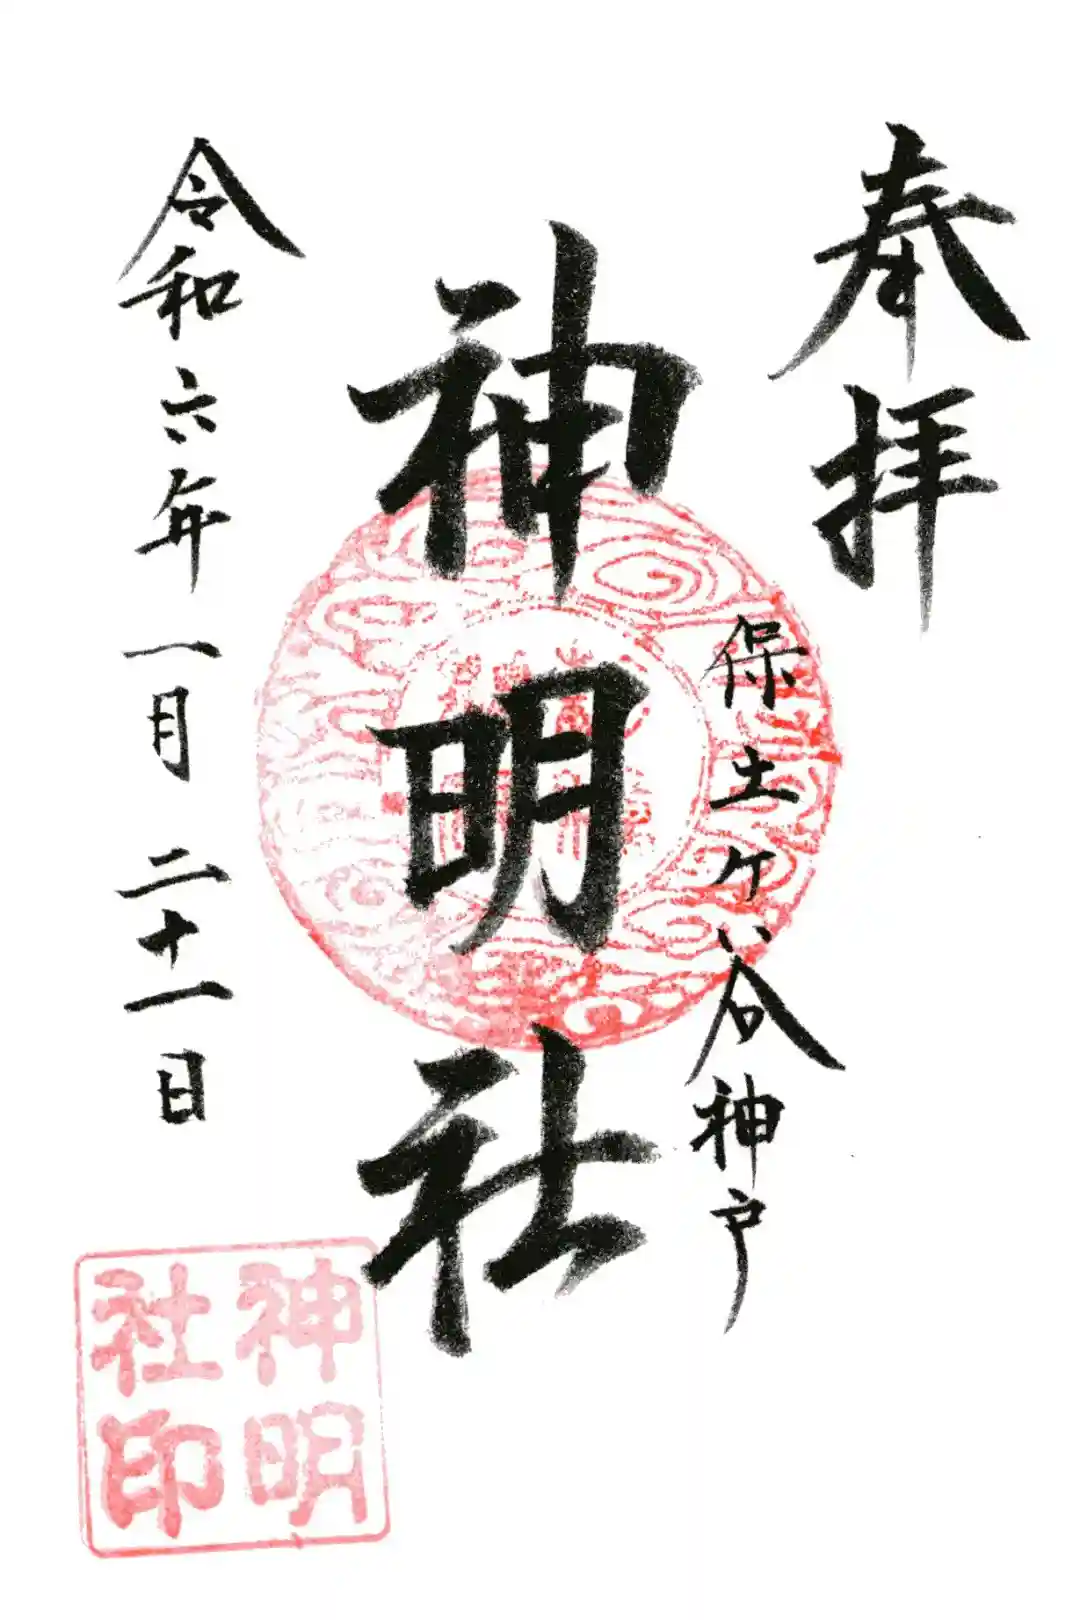 奉拝
保土ヶ谷神戸
神明社
令和六年一月二十一日
神明
社印